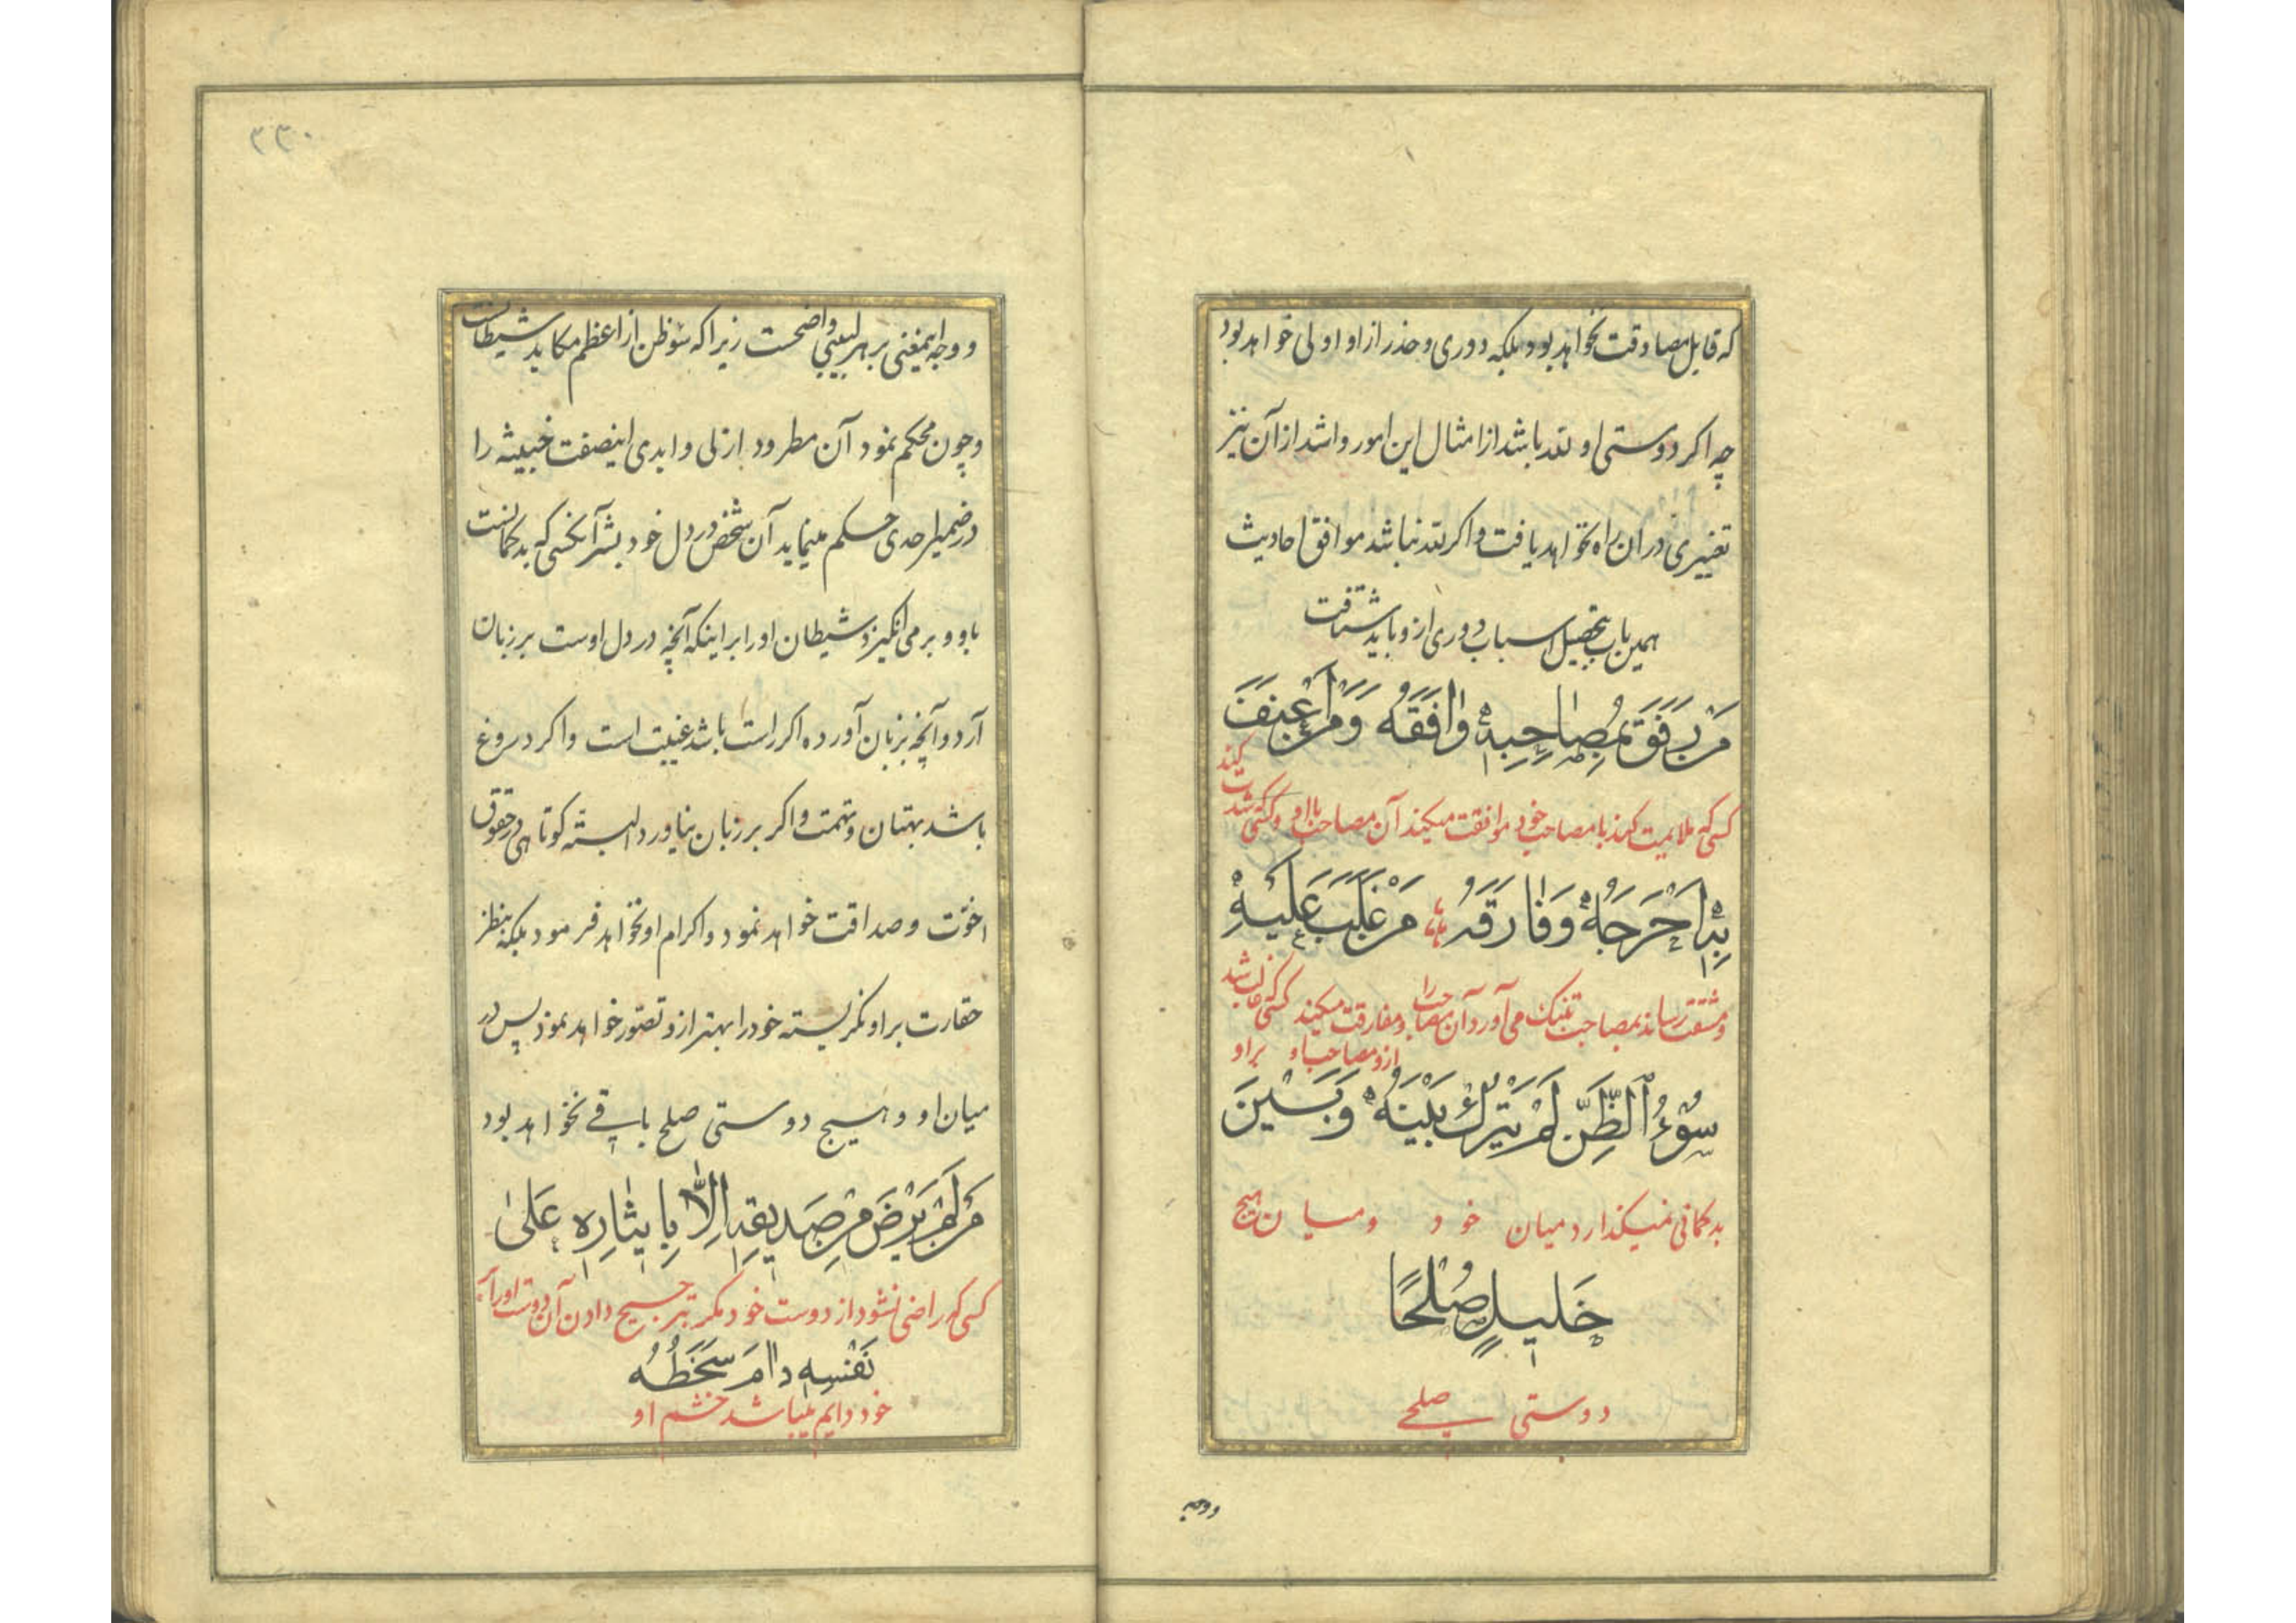 که قابل مصادقت نخواهد بود بلکه دوری و حذر از او اولی خواهد بود
چه اکر دوستی او تقد باشد از امثال این امور و اشد از آن نیز
تغییری در ان راه نخواهد یافت و اکر تقد نباشد موافق احادیث
همین باب بتحصیل اسباب دوری ازو باید شتافت
مَنْ رَفَقَ بِمُصٰاحِبِهِ وٰافَقَهُ وَمَنْ اَعْنَفَ
کسی که ملایمت کند با مصاحب خود موافقت میکند آن مصاحب بااو و کسی که شدت کند
بِهِ اَحْرَجَهُ وَفٰارَقَهُ مَنْ غَلَبَ عَلَیْهِ
و مشقت رساند بمصاحب تنک می آورد آن مصاحب را و مفارقت میکند ازو مصاحب او کسی که غالب شد بر او
سُوْءُ الظَّنِّ لَمْ یَتْرُكْ بَیْنَهُ وَبَیْنَ
بدکمانی نمیکذارد میان خود و میان هیچ
خَلیلٍ صُلْحًا
دوستی صلحی
ووجه
٣٣٠
ووجه اینمعنی بر هر لبیبی واضحست زیرا که سوء ظن از اعظم مکاید شیطانست
وچون محکم نمود آن مطرود ازلی و ابدی اینصفت خبیثه را
در ضمیر احدی حکم مینماید آن شخص در دل خود بشر آنکسی که بدکمانست
باو و برمی انکیزد شیطان اورا بر اینکه آنچه در دل اوست بر زبان
آرد و آنچه بزبان آورده اکر راست باشد غیبت است و اکر دروغ
باشد بهتان و تهمت و اکر بر زبان نیاورد البته کوتاهی در حقوق
اخوّت و صداقت خواهد نمود و اکرام او نخواهد فرمود بلکه بنظر
حقارت بر او نکریسته خود را بهتر ازو تصوّر خواهد نمود پس در
میان او و هیچ دوستی صلح باقی نخواهد بود
مَنْ لَمْ یَرْضَ مِنْ صَدیقِهِ اِلاّٰ بِایثٰارِهِ عَلیٰ
کسی که راضی نشود از دوست خود مکر بترجیح دادن آن دوست اورا بر
نَفْسِهِ دٰامَ سَخَطُهُ
خود دایم میباشد خشم او